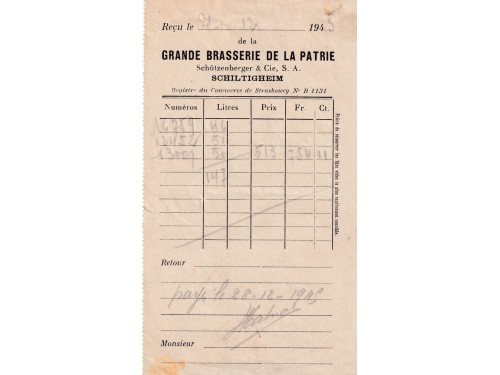 Reçu le 12 1945
de la
GRANDE BRASSERIE DE LA PATRIE
Schützenberger & Cie, S. A.
SCHILTIGHEIM
Register du Commerce de Strasbourg Nº B 1131
Numéros Litres Prix Fr. Ct.
16759 46
12452 51
13109 50 513 754 11
147
Prière de retourner les fûts vides le plus rapidement possible.
Retour
payé le 28-12-1945
Monsieur